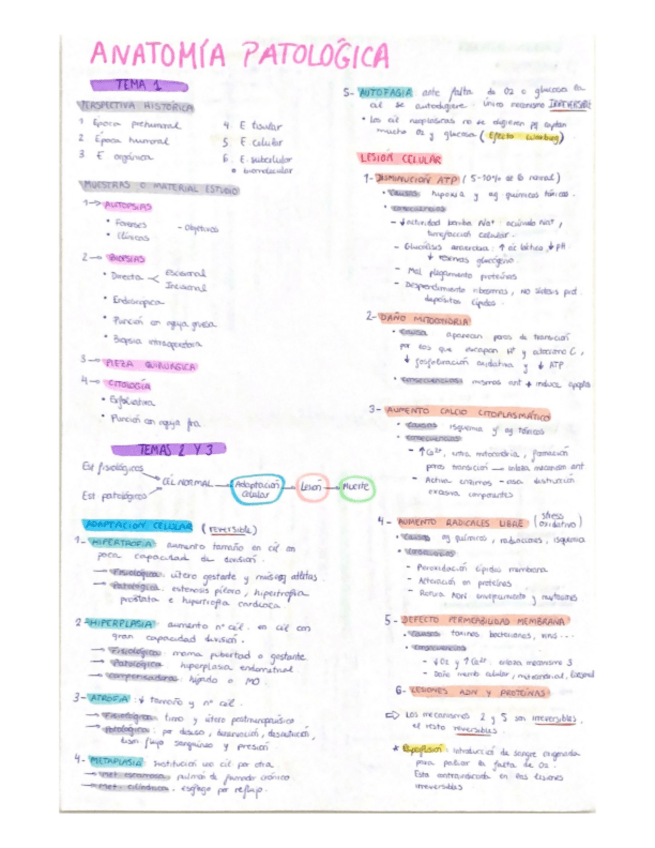 ANATOMÍA PATOLÓGICA
TEMA 1
PERSPECTIVA HISTÓRICA
1 Época prehumoral
2 Época humoral
3 E orgánica
4. E tisular
5 E. celular
6. E. subcelular
o biomolecular
MUESTRAS O MATERIAL ESTUDIO
1→ AUTOPSIAS
• Forenses
• Clínicas
- Objetivos
2→ BIOPSIAS
• Directa
Escisional
Incisional
• Endoscópica
• Punción con aguja gruesa
• Biopsia intraoperatoria
3→ PIEZA QUIRÚRGICA
4→ CITOLOGÍA
• Exfoliativa
• Punción con aguja fina
TEMAS 2 Y 3
Est fisiológicos
Est patológicos
CÉL NORMAL
Adaptación
celular
Lesión
Muerte
ADAPTACIÓN CELULAR (REVERSIBLE)
1- HIPERTROFIA: aumento tamaño en cél con
poca capacidad de división.
→ Fisiológica: útero gestante y músc atletas
→ Patológica: estenosis píloro, hipertrofia
próstata e hipertrofia cardíaca.
2- HIPERPLASIA: aumento nº cél. en cél con
gran capacidad división.
→ Fisiológica: mama pubertad o gestante
→ Patológica: hiperplasia endometrial
→ Compensadora: hígado o MO
3- ATROFIA: ↓ tamaño y nº cél.
→ Fisiológica: timo y útero postmenopáusico
→ Patológica: por desuso, denervación, desnutrición,
flujo sanguíneo y presión
4- METAPLASIA: sustitución una cél por otra.
→ Met. escamosa: pulmón de fumador crónico
→ Met. cilíndrica: esófago por reflujo.
5- AUTOFAGIA: ante falta de O2 o glucosa la
cél se autodigiere. Único mecanismo IRREVERSIBLE
• Las cél neoplásicas no se digieren pq captan
mucho O2 y glucosa (Efecto Warburg)
LESIÓN CELULAR
1- DISMINUCIÓN ATP (5-10% de lo normal)
• Causas: hipoxia y ag químicos tóxicos.
• Consecuencias
- ↓ actividad bomba Na+: acúmulo Na+,
tumefacción celular.
- Glucólisis anaerobia: ↑ ác láctico, ↓ pH
↓ reservas glucógeno.
- Mal plegamiento proteínas
- Desprendimiento ribosomas, no síntesis prot.
depósitos lípidos.
2- DAÑO MITOCONDRIA
• Causa: aparecen poros de transición
por los que escapan H+ y citocromo C,
↓ fosforilación oxidativa y ↓ ATP.
• Consecuencias: mismas ant + induce apopto
3- AUMENTO CALCIO CITOPLASMÁTICO
• Causas: isquemia y ag tóxicos
• Consecuencias
- ↑ Ca2+, entra mitocondria, formación
poros transición — enlaza mecanismo ant
- Activa enzimas - destrucción
componentes
4- AUMENTO RADICALES LIBRE (stress
oxidativo)
• Causas: ag químicos, radiaciones, isquemia
• Consecuencias
- Peroxidación lípidos membrana
- Alteración en proteínas
- Rotura ADN: envejecimiento y mutaciones
5- DEFECTO PERMEABILIDAD MEMBRANA
• Causas: toxinas bacterianas, virus ...
• Consecuencias
- ↓ O2 y ↑ Ca2+: enlaza mecanismo 3
- Daño memb celular, mitocondrial, lisosomal
6- LESIONES ADN Y PROTEÍNAS
⇨ Los mecanismos 2 y 5 son irreversibles,
el resto reversibles.
* Reperfusión: introducción de sangre oxigenada
para paliar la falta de O2.
Está contraindicada en las lesiones
irreversibles